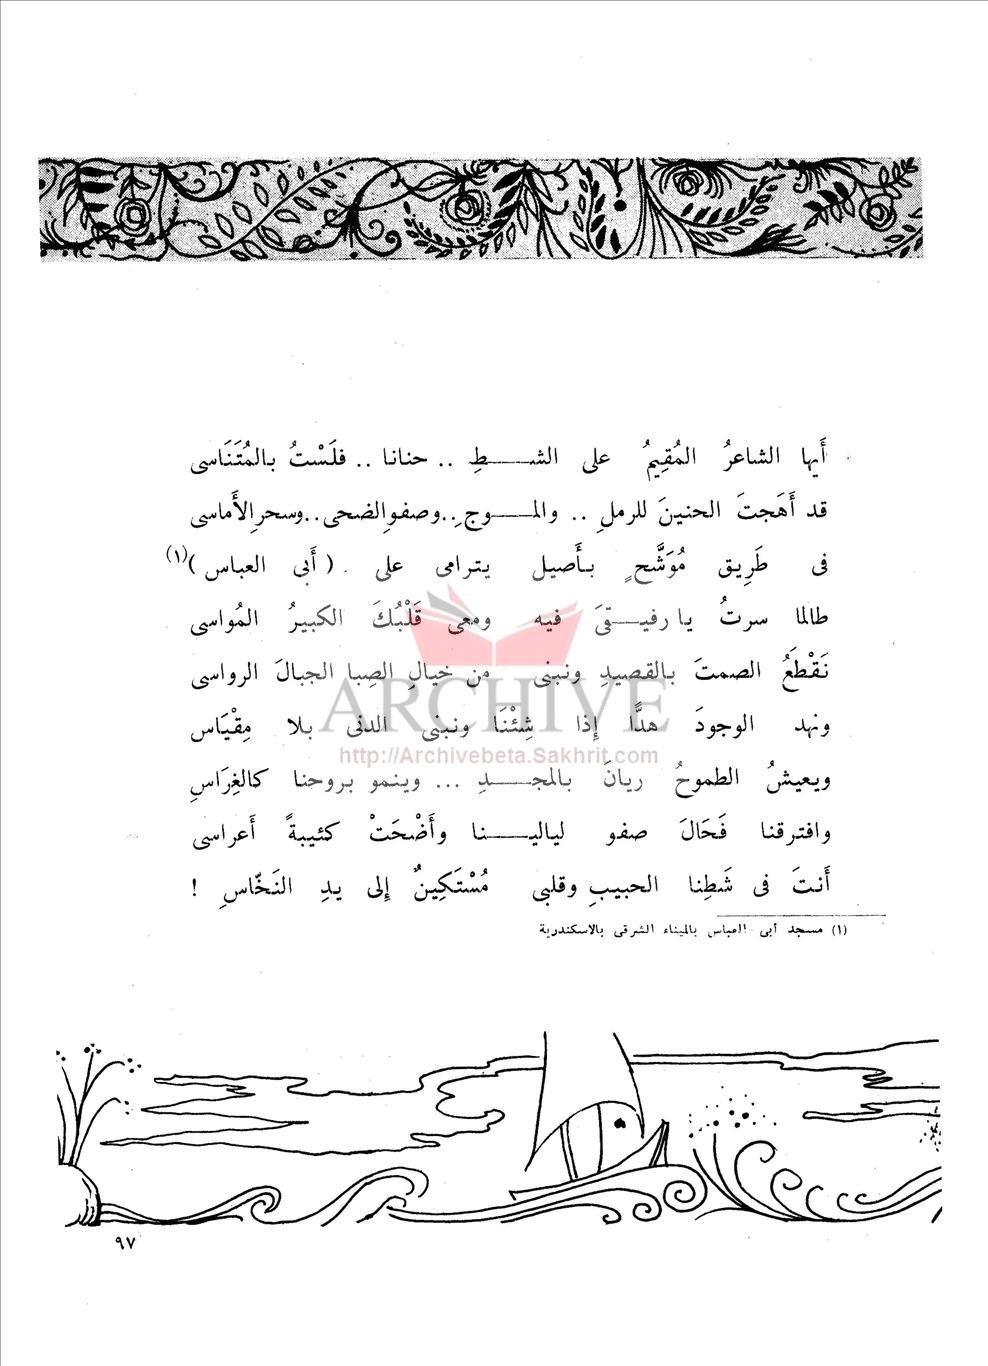 أَيها الشاعرُ المُقِيمُ على الشــطِ .. حنانا .. فلَسْتُ بالمُتَنَاسى
قد أَهَجتَ الحنينَ للرملِ .. والمــوجِ..وصفوِالضحى..وسحرِالأَماسى
فى طَرِيق مُوَشَّحٍ بأَصيل يترامى على . ( أَبى العباس )(١)
طالما سرتُ يارفيــقىَ فيه ومعى قَلْبُكَ الكبيرُ المُواسى
نَقْطَعُ الصمتَ بالقصيدِ ونبنى من خيالِ الصِبا الجبالَ الرواسى
ونهد الوجودَ هدًّا إِذا شِئْنَا ونبنى الدنى بلا مِقْيَاس
ويعيشُ الطموحُ ريانَ بالمجــدِ ... وينمو بروحنا كالغِرَاسِ
وافترقنا فَحَالَ صفو لياليــنا وأَضْحَتْ كئيبةً أَعراسى
أَنتَ فى شَطِنا الحبيبِ وقلبى مُسْتَكِينٌ إِلى يدِ النَخّاسِ !
(١) مسجد أبى العباس بالميناء الشرقى بالاسكندرية
ARCHIVE
http://Archivebeta.Sakhrit.com
٩٧